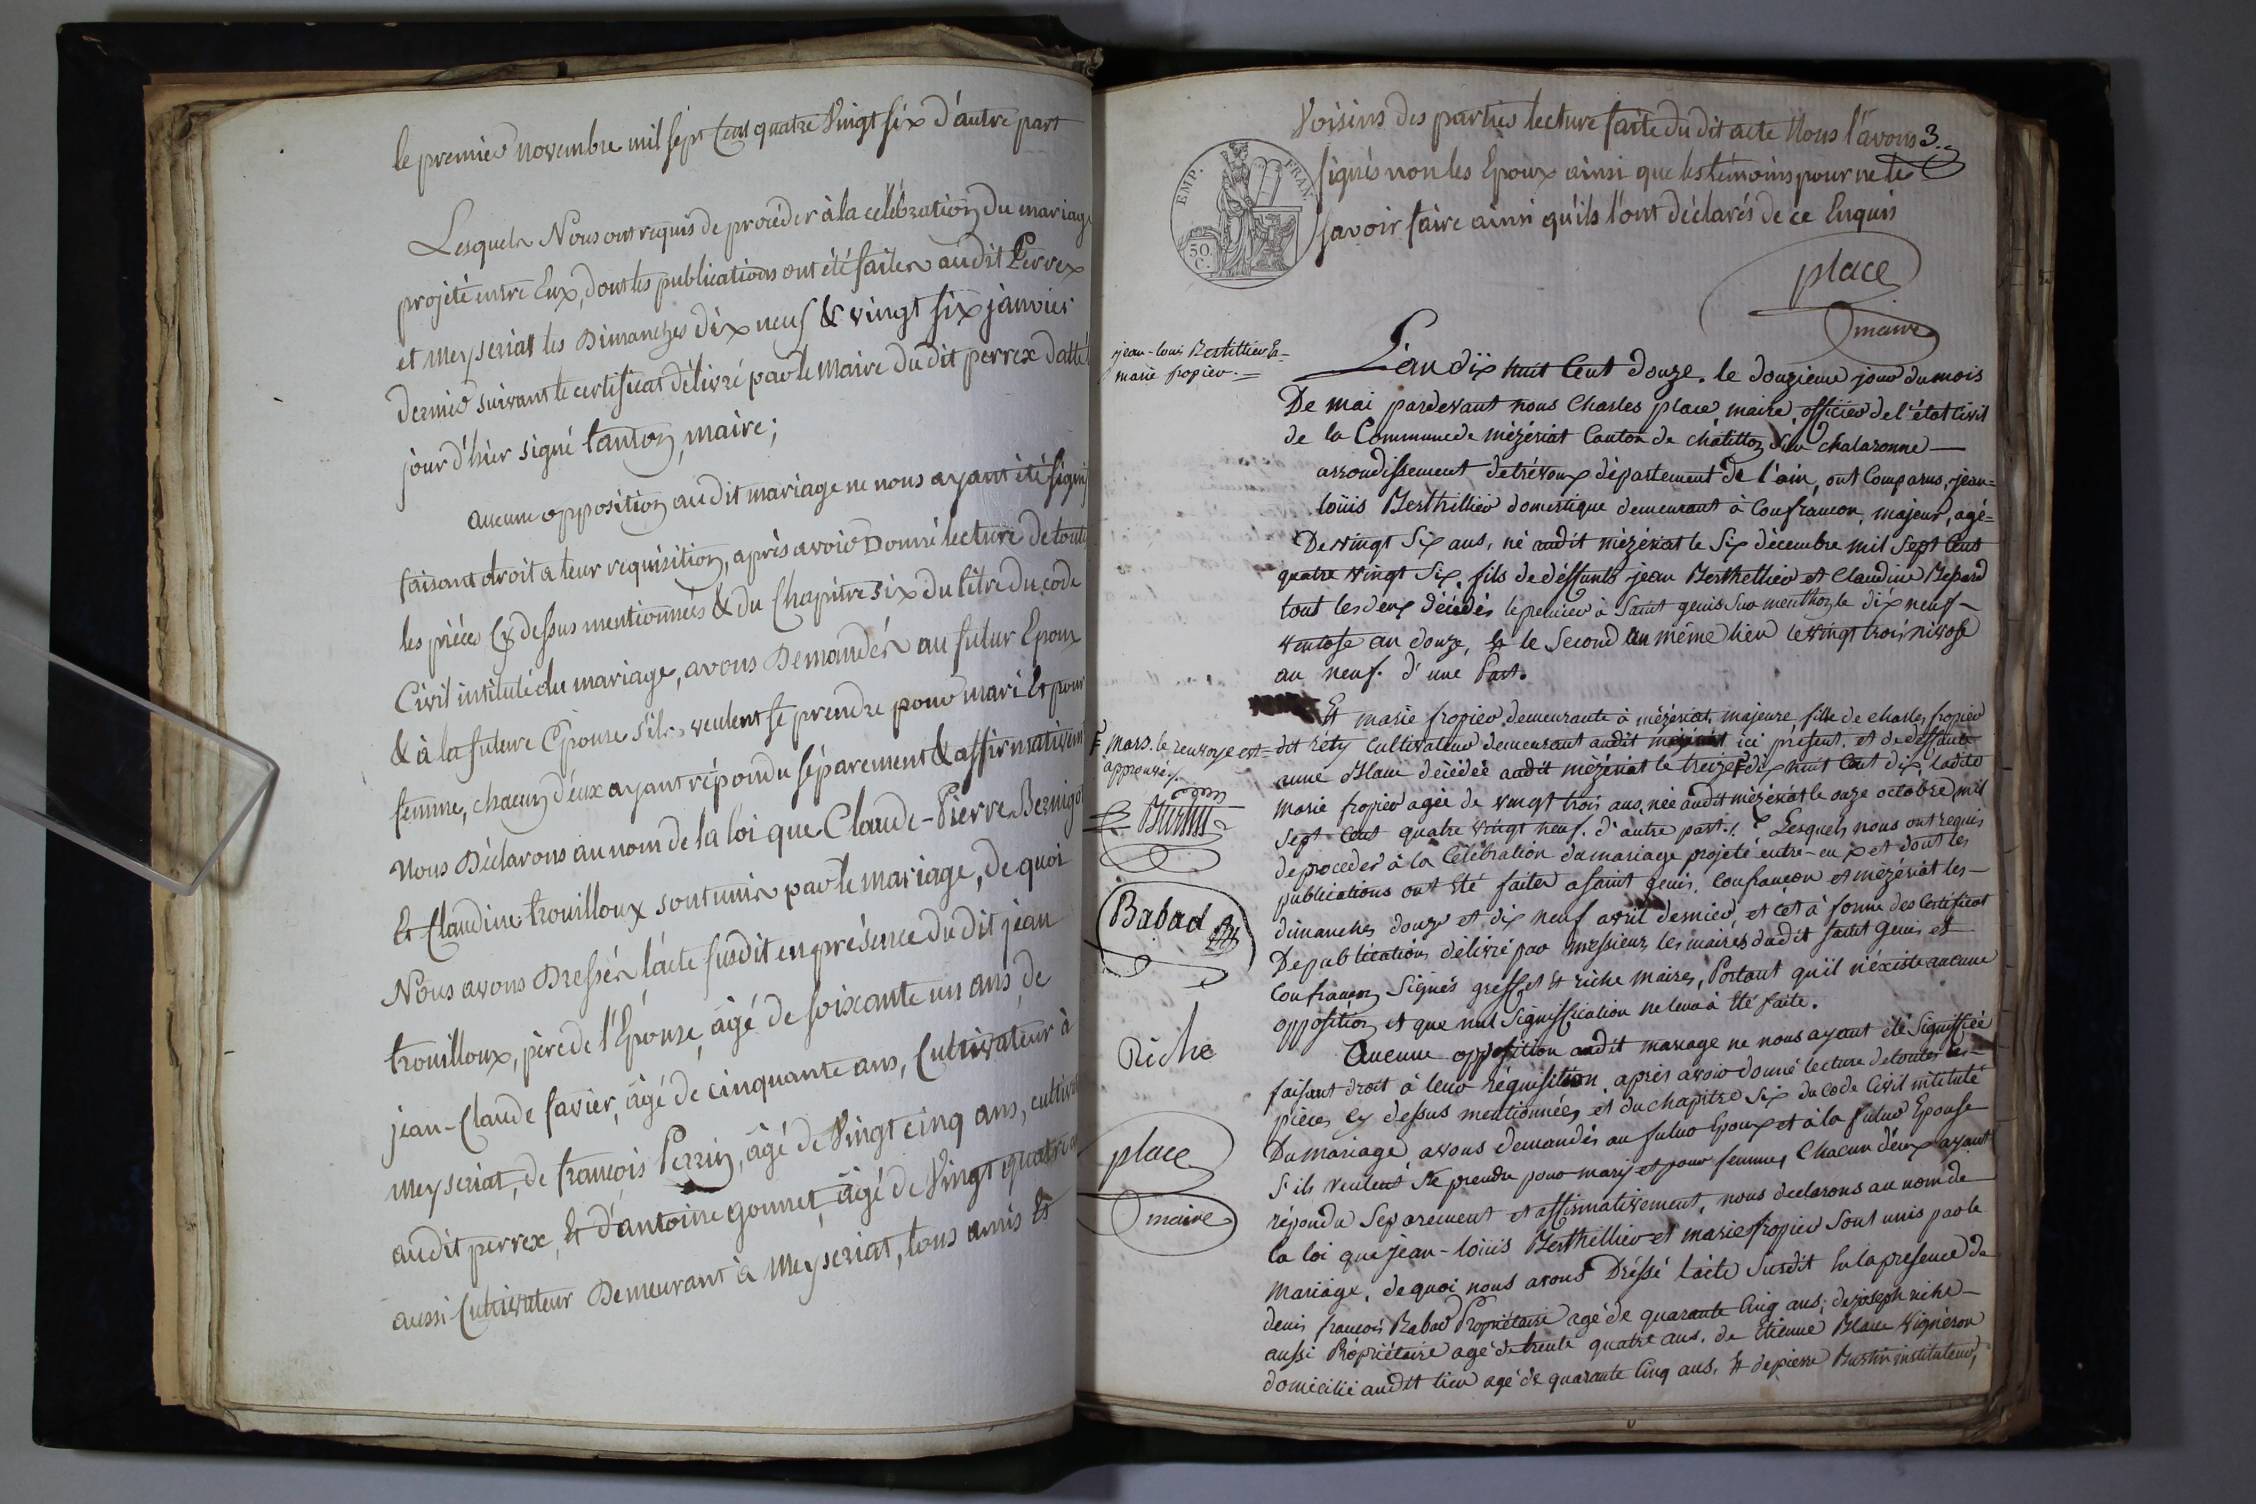 le premier novembre mil sept Cent quatre Vingt six d'autre part
Lesquels Nous ont requis de procéder à la célébration du mariage
projeté entre Eux, dont les publications ont été faites audit Perrex
et Meyseriat les Dimanches dix neuf & vingt six janvier
dernier suivant le certificat délivré par le Maire du dit perrex datté
jour d'hier signé tanton, maire;
aucune opposition audit mariage ne nous ayant été signif
faisant droit a leur requisition, après avoir Donné lecture de toutes
les pièces Cy dessus mentionnées & du Chapitre six du titre du code
Civil intitulé du mariage, avons Demandés au futur Epoux
& à la future Epouse s'ils veulent se prendre pour mari & pour
femme, chacun d'eux ayant répondu séparement & affirmativem
Nous Déclarons au nom de la loi que Claude-Pierre Bernigot
Et Claudine trouilloux sont unis par le mariage, de quoi
Nous avons Dressés l'acte susdit en présence du dit jean
trouilloux, père de l'Epouse, âgé de soixante un ans, de
jean-Claude favier, âgé de cinquante ans, Cultivateur à
Meyseriat, de françois Perrin, âgé de Vingt cinq ans, cultiva
audit perrex, Et d'antoine gonnet, âgé de Vingt quatre a
aussi Cultivateur Demeurant à Meyseriat, tous amis Et
Voisins des parties lecture faite du dit acte Nous l'avons
3.
signés non les Epoux ainsi que les témoins pour ne le
savoir faire ainsi qu'ils l'ont déclarés de ce Enquis
EMP. FRAN.
50
C.
place
maire
jean-louis Bertillier &
marie fropier.
L'an dix huit Cent douze. le douzieme jour du mois
De mai pardevant nous Charles place maire, officier de l'état Civil
de la Commune de mézériat Canton de châtillon sur chalaronne
arrondissement de trévoux département de l'ain, ont Comparus, jean=
loüis Berthillier domestique demeurant à Confrançon, majeur, agé=
De vingt Six ans, né audit mézériat le Six décembre mil Sept Cent
quatre vingt Six, fils de déffunts jean Berthellier et Claudine Bepard
tout les deux décédés le premier à Saint genis Sur menthon le dix neuf
ventose an douze, & le Second au même lieu le vingt trois nivose
an neuf. d'une Part.
Et marie fropier demeurante à mézériat, majeure, fille de charles fropier
dit réty Cultivateur demeurant audit mézériat ici présent. et de deffunte
anne Blanc décédée audit mézériat le treize F dix huit Cent dix, ladite
marie fropier agée de vingt trois ans, née audit mézériat le onze octobre mil
Sept Cent quatre vingt neuf. d'autre part./. Lesquels nous ont requis
de proceder à la Célébration du mariage projeté entre-eux et dont les
publications ont été faites a saint genis, Confrançon et mézériat les
dimanches douze et dix neuf avril dernier, et cet à forme des Certificat
De publications délivré par messieurs les maires dudit saint genis et
Confrançon Signés greffet & riche maires, Portant qu'il n'éxiste aucune
opposition et que nul Signiffication ne leur à été faite.
Aucune opposition audit mariage ne nous ayant été Signiffiée
faisant droit à leur réquisition, après avoir donné lecture de toutes les
pieces cy dessus mentionnées, et du chapitre Six du Code Civil intitulé
Du mariage avons demandés au futur Epoux et à la futur Epouse
S'ils veulent Se prendre pour mary et pour femme, Chacun d'eux ayant
répondu Separement et affirmativement, nous declarons au nom de
la loi que jean-loüis Berthillier et marie fropier Sont unis par le
mariage, de quoi nous avons Dréssé l'acte Susdit En la présence de
denis françois Babad Propriétaire agé de quarante Cinq ans; de joseph riche
aussi Propriétaire agé de trente quatre ans, de Etienne Blanc Vigneron
domicilié audit lieu agé de quarante Cinq ans, & de pierre Burtin instituteur,
F mars. le renvoye est
approuvé./.
Burtin
Babad
Riche
place
maire